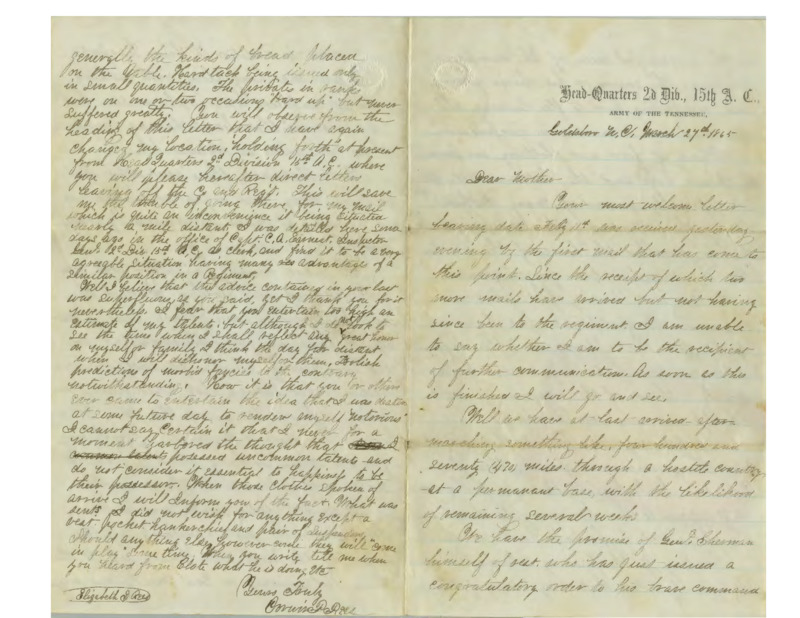 Head-Quarters 2d Div., 15th A. C.,
ARMY OF THE TENNESSEE,
Goldsboro N.C. March 27th 1865
Dear Mother
Your most welcome letter
bearing date was received yesterday
evening by the first mail that has come to
this point. Since the receipt of which two
more mails have arrived but not having
since been to the regiment I am unable
to say whether I am to be the recipient
of further communication. As soon as this
is finished I will go and see.
Well we have at last arrived after
marching something like, four hundred and
seventy (470 miles through a hostile country
at a permanant base, with the likelihood
of remaining several weeks
We have the promise of Genl. Sherman
himself of rest. who has just issued a
congratulatory order to his brave command
generally the kinds of bread placed
on the table. Hard tack being issued only
in small quantities. The privates in ranks
were on one or two occasions "hard up" but never
suffered greatly. You will observe from the
heading of this letter that I have again
changed my location, holding forth at present
from Head Quarters 2d Division 15th A.C. where
you will please hereafter direct letters
leaving off the Co and Regt. This will save
me the trouble of going there, for my mail
which is quite an inconvenience it being situated
nearly a mile distant. I was detailed here some
days ago in the office of Capt. C.A. Earnest, Inspector
Genl. 2d Div 15th A.C. as clerk, and find it to be a very
agreeable situation having many advantages of a
similar position in a Regiment.
Well I believe that the advice contained in your last
was superfluous, as you said, yet I thank you for it
nevertheless. I fear that you entertain too high an
estimate of my talents. but although I don't look to
see the time when I shall reflect any great honor
on myself or family, I think the day far distant
when I will dishonor myself or them, foolish
prediction of morbid fancies to the contrary
notwithstanding. How it is that you or others
ever came to entertain the idea that I was destined
at some future day to render myself "notorious"
I cannot say. Certain it that I never for a
moment harbored the thought that I
possessed uncommon talents and
do not consider it essential to happiness to be
their possessor. When those clothes spoken of
arrive I will inform you of the fact. What was
sent? I did not wish for anything except a
vest, pocket hankerchief and pair of suspenders
Should any thing else however come they will "come
in play" some time. When you write tell me when
you heard from what he is doing &c
Yours Truly
Elizabeth D Rees